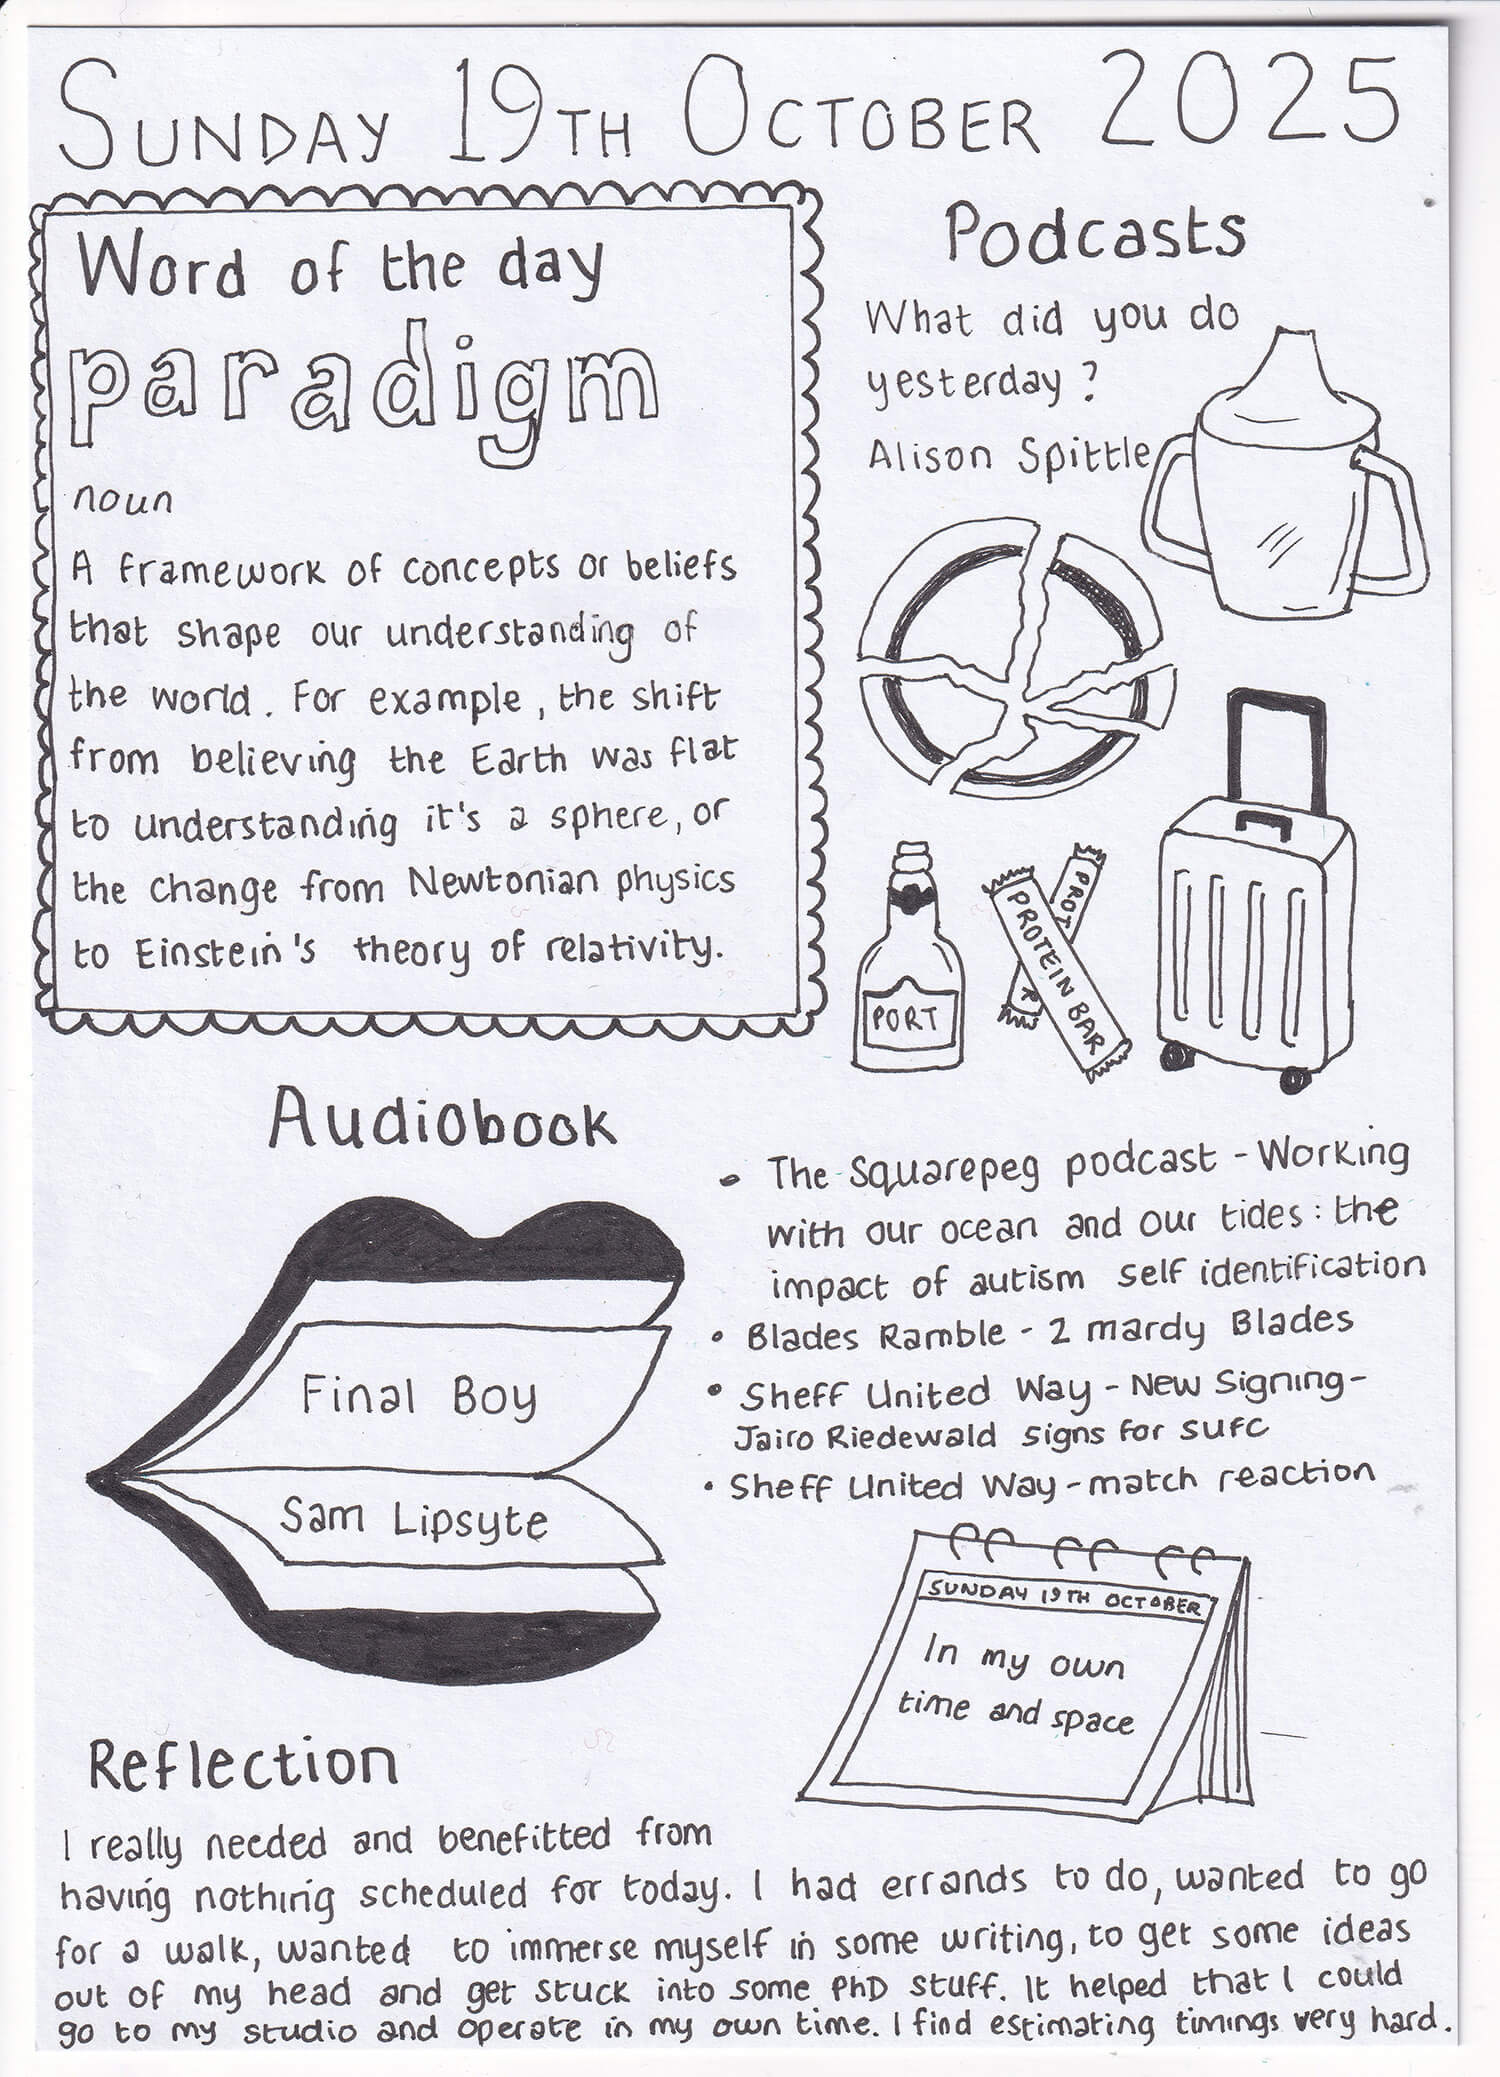 SUNDAY 19TH OCTOBER 2025
Word of the day
paradigm
noun
A framework of concepts or beliefs
that shape our understanding of
the world. For example, the shift
from believing the Earth was flat
to understanding it's a sphere, or
the change from Newtonian physics
to Einstein's theory of relativity.
Podcasts
What did you do
yesterday?
Alison Spittle
PORT
PROT
PROTEIN BAR
R
• The Squarepeg podcast - Working
with our ocean and our tides: the
impact of autism self identification
• Blades Ramble - 2 mardy Blades
• Sheff United Way - New Signing -
Jairo Riedewald signs for SUFC
• Sheff United Way - match reaction
Audiobook
Final Boy
Sam Lipsyte
SUNDAY 19TH OCTOBER
In my own
time and space
Reflection
I really needed and benefitted from
having nothing scheduled for today. I had errands to do, wanted to go
for a walk, wanted to immerse myself in some writing, to get some ideas
out of my head and get stuck into some PhD stuff. It helped that I could
go to my studio and operate in my own time. I find estimating timings very hard.